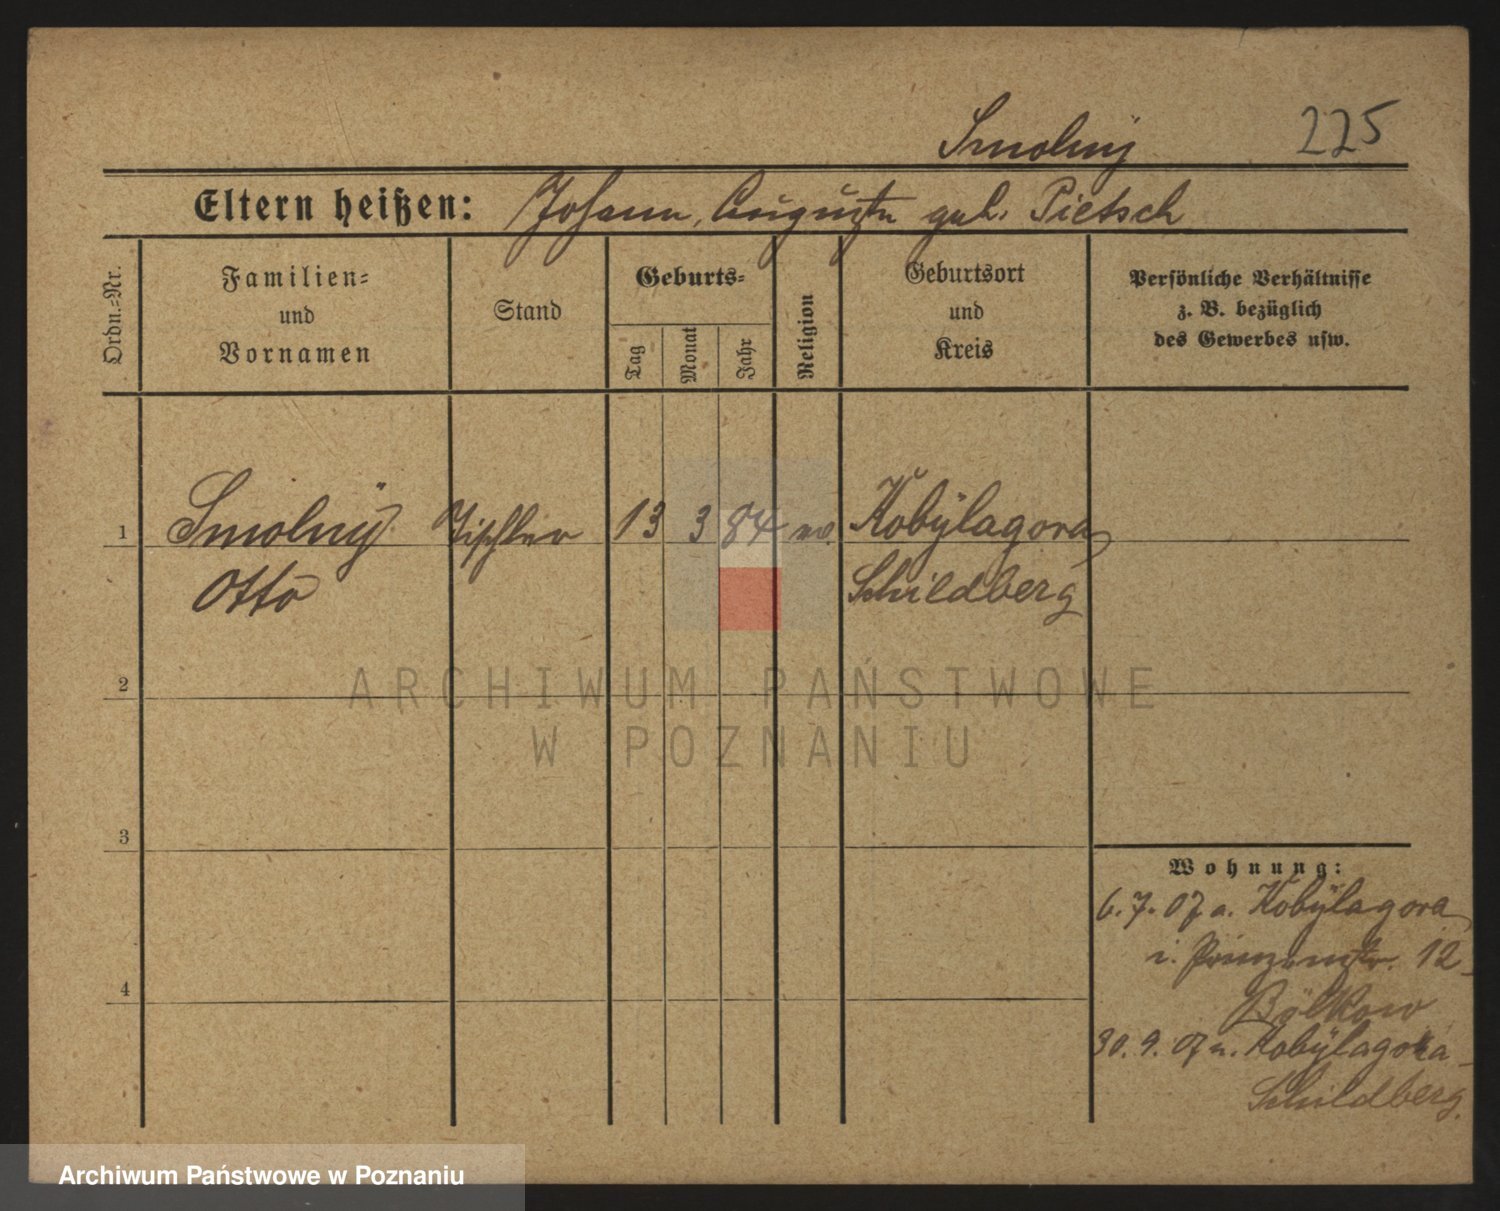 Smolny 225
Eltern heißen: Johann, Auguste geb. Pietsch
Ordn.=Nr.
Familien=
und
Vornamen
Stand
Geburts=
Tag
Monat
Jahr
Religion
Geburtsort
und
Kreis
Persönliche Verhältnisse
z. B. bezüglich
des Gewerbes usw.
1 Smolnÿ Tischler 13 3 84 ev. Kobÿlagora
Otto Schildberg
2
ARCHIWUM PAŃSTWOWE
W POZNANIU
3
Wohnung:
6.7.07 a. Kobÿlagora
i. Prinzenstr. 12
Bölkow
4
30.9.07 n. Kobÿlagora
Schildberg.
Archiwum Państwowe w Poznaniu